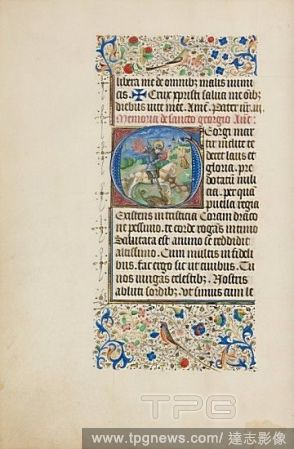 libera me de omnibz malis inimi
cas. ✠ Crux xpristi salva me oībz
diebus vite mee. Amē. Pater nr. iii.
Memoria de sancto georgio Anē:
Georgi mar
tir inclite te
decet laus et
gloria. pre
dotatū mili
cia. per quā
puella regia
Existens in tristicia Coram draco
ne pessimo. te corde rogās intimo
Salvata est animo se reddidit
altissimo. Cum multis infidel
bus. fac ergo sic ut civibus. Tu
nos iungas celestibz. Nostris
abluti sordibz. Ut simus cum le
TPG
www.tpgnews.com / 達志影像